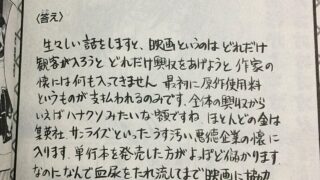 〈答え〉
生々しい話をしますと、映画というのは どれだけ
観客が入ろうと どれだけ興収をあげようと 作家の
懐には何も入ってきません。最初に原作使用料
というものが支払われるのみです。全体の興収から
いえばハナクソみたいな額ですね。ほとんどの金は
集英社、サンライズといったうす汚い悪徳企業の懐に
入ります。単行本を発売した方がよっぽど儲かります。
なのになんで血尿をたれ流してまで映画に協力